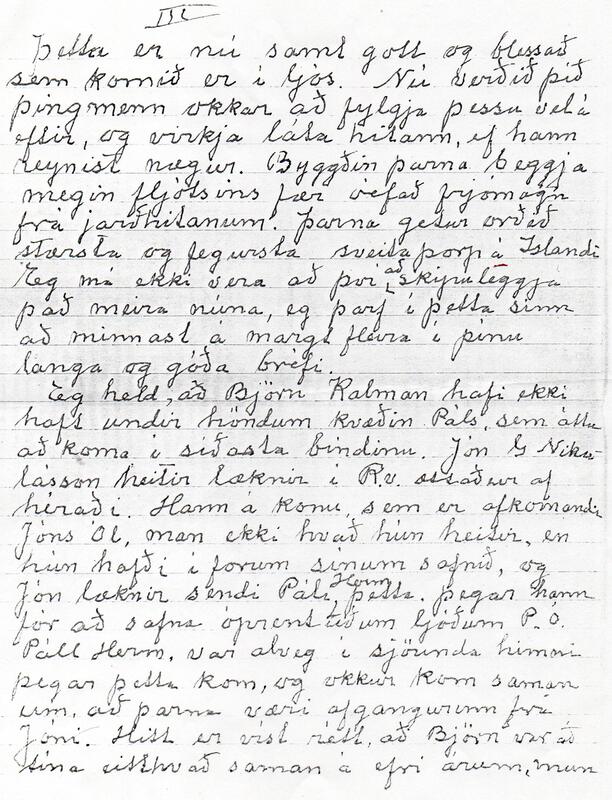 III
Þetta er nú samt gott og blessað
sem komið er í ljós. Nú verðið þið
þingmenn okkar að fylgja þessu vel á
eftir, og virkja láta hitann, ef hann
reynist nægur. Byggðin þarna beggja
megin fljótsins fær vefað frjómagn
frá jarðhitanum. Þarna getur orðið
stærsta og fegursta sveitaþorp á Íslandi
Eg má ekki vera að því að skipuleggja
það meira núna, eg þarf í þetta sinn
að minnast á margt fleira í þínu
langa og góða bréfi.
Eg held, að Björn Kalman hafi ekki
haft undir höndum kvæðin Páls, sem áttu
að koma í síðasta bindinu. Jón G Niku-
lásson heitir læknir í R.v. ættaður af
héraði. Hann á konu, sem er afkomandi
Jóns Ól, man ekki hvað hún heitir, en
hún hafði í forum sínum safnið, og
Jón læknir sendi Páli Herm þetta. þegar hann
fór að safna óprentuðum ljóðum P. Ó.
Páll Herm. var alveg í sjöunda himni
þegar þetta kom, og okkur kom saman
um, að þarna væri afgangurinn frá
Jóni. Hitt er víst rétt, að Björn var að
tína eitthvað saman á efri árum, mun